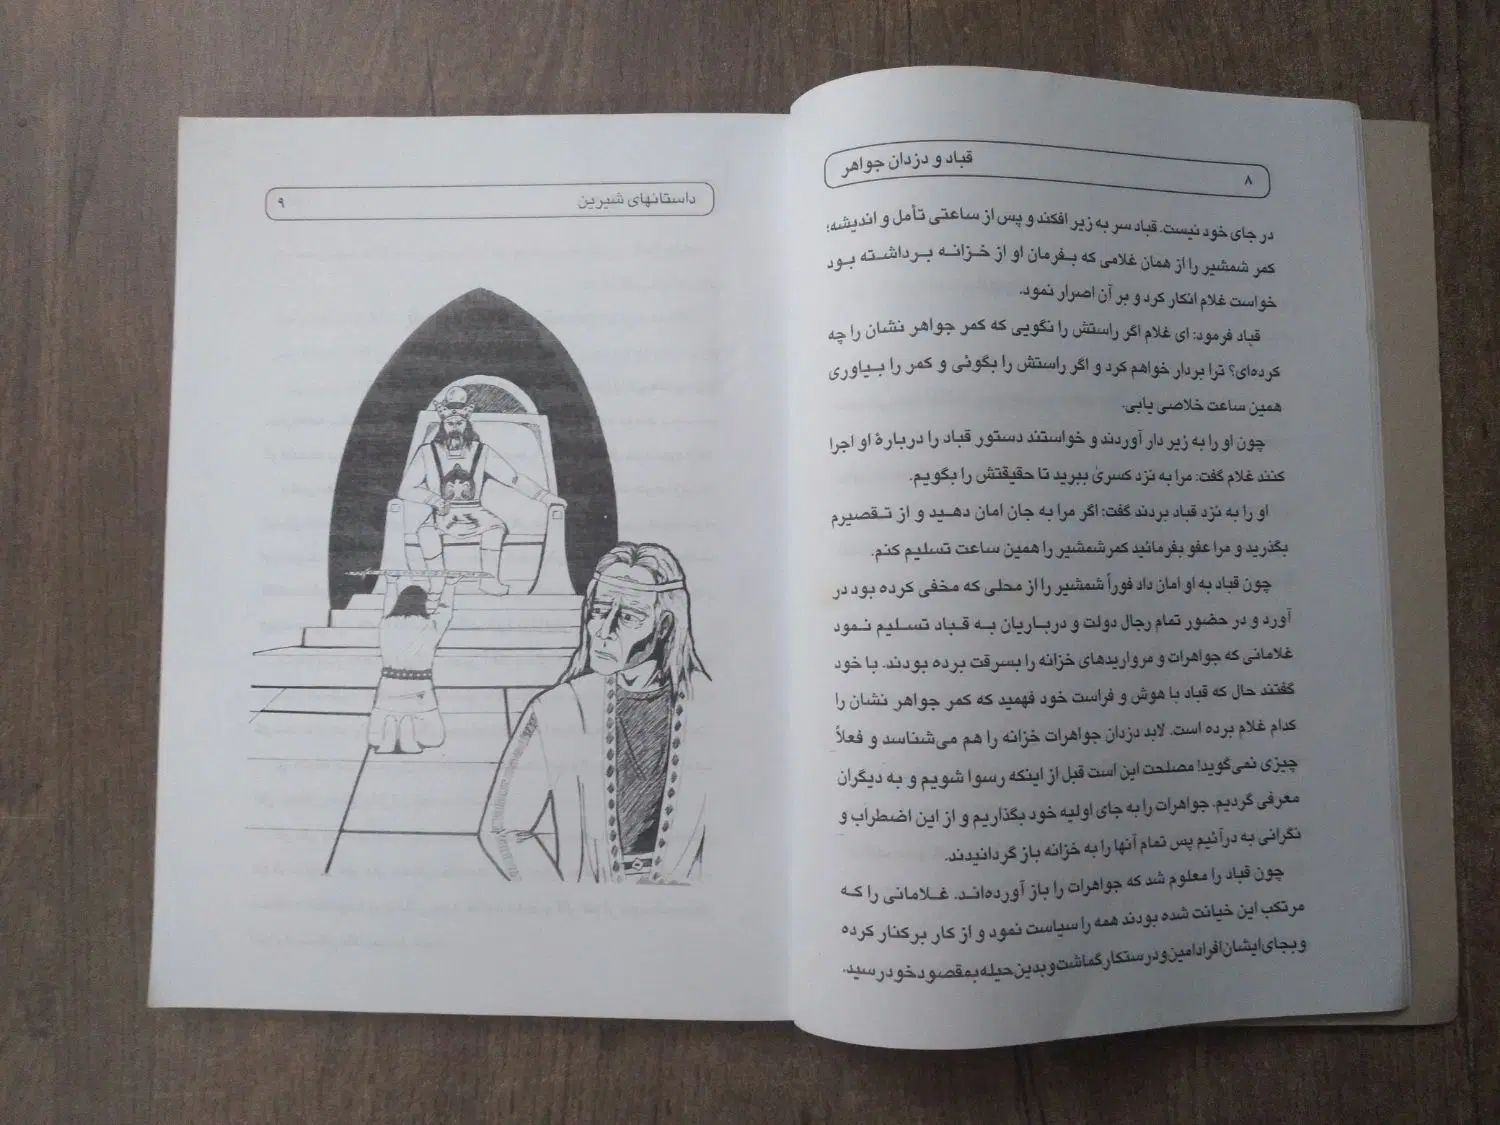 قباد و دزدان جواهر
۸
در جای خود نیست. قباد سر به زیر افکند و پس از ساعتی تأمل و اندیشه؛
کمر شمشیر را از همان غلامی که بفرمان او از خزانه برداشته بود
خواست غلام انکار کرد و بر آن اصرار نمود.
قباد فرمود: ای غلام اگر راستش را نگویی که کمر جواهر نشان را چه
کرده‌ای؟ ترا بردار خواهم کرد و اگر راستش را بگوئی و کمر را بیاوری
همین ساعت خلاصی یابی.
چون او را به زیر دار آوردند و خواستند دستور قباد را دربارهٔ او اجرا
کنند غلام گفت: مرا به نزد کسریٰ ببرید تا حقیقتش را بگویم.
او را به نزد قباد بردند گفت: اگر مرا به جان امان دهید و از تقصیرم
بگذرید و مرا عفو بفرمائید کمرشمشیر را همین ساعت تسلیم کنم.
چون قباد به او امان داد فوراً شمشیر را از محلی که مخفی کرده بود در
آورد و در حضور تمام رجال دولت و درباریان به قباد تسلیم نمود
غلامانی که جواهرات و مرواریدهای خزانه را بسرقت برده بودند. با خود
گفتند حال که قباد با هوش و فراست خود فهمید که کمر جواهر نشان را
کدام غلام برده است. لابد دزدان جواهرات خزانه را هم می‌شناسد و فعلاً
چیزی نمی‌گوید! مصلحت این است قبل از اینکه رسوا شویم و به دیگران
معرفی گردیم. جواهرات را به جای اولیه خود بگذاریم و از این اضطراب و
نگرانی به درآئیم پس تمام آنها را به خزانه باز گردانیدند.
چون قباد را معلوم شد که جواهرات را باز آورده‌اند. غلامانی را که
مرتکب این خیانت شده بودند همه را سیاست نمود و از کار برکنار کرده
و بجای ایشان افراد امین و درستکار گماشت و بدین حیله بمقصود خود رسید.
داستانهای شیرین
۹